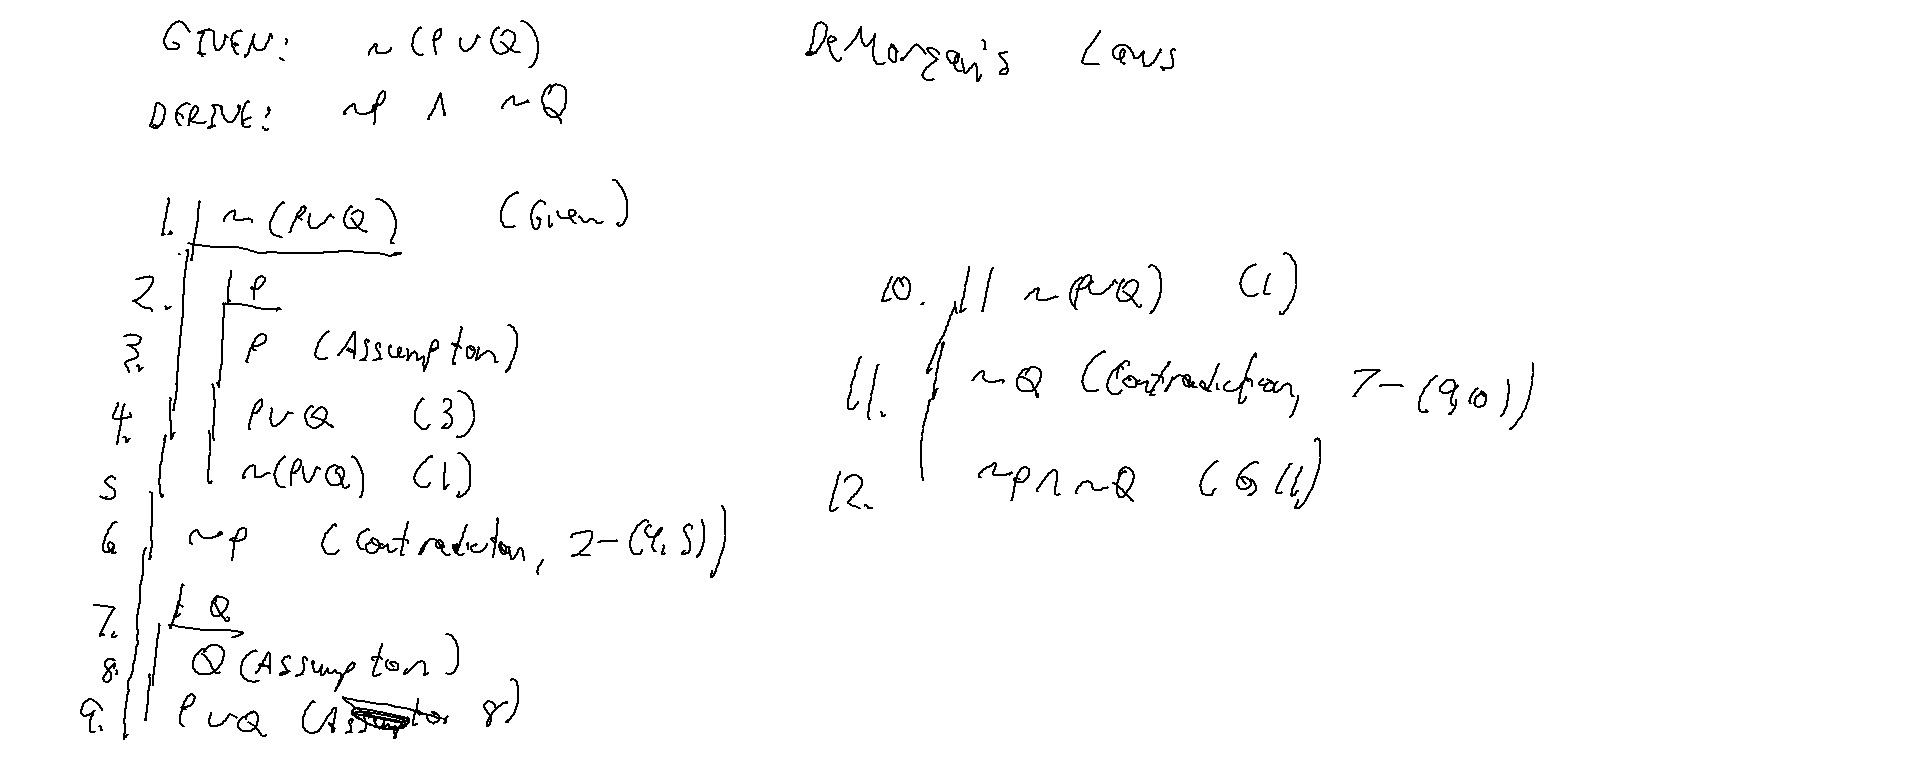 GIVEN: ~(P∨Q)
DeMorgan's Laws
DERIVE: ~P ∧ ~Q
1. ~(P∨Q) (Given)
2. P
3. P (Assumpton)
4. P∨Q (3)
5 ~(P∨Q) (1)
6. ~P (Contradicton, 2-(4,5))
7. Q
8. Q (Assumpton)
9. P∨Q (8)
10. ~(P∨Q) (1)
11. ~Q (Contradiction, 7-(9,10))
12. ~P∧~Q (6,11)